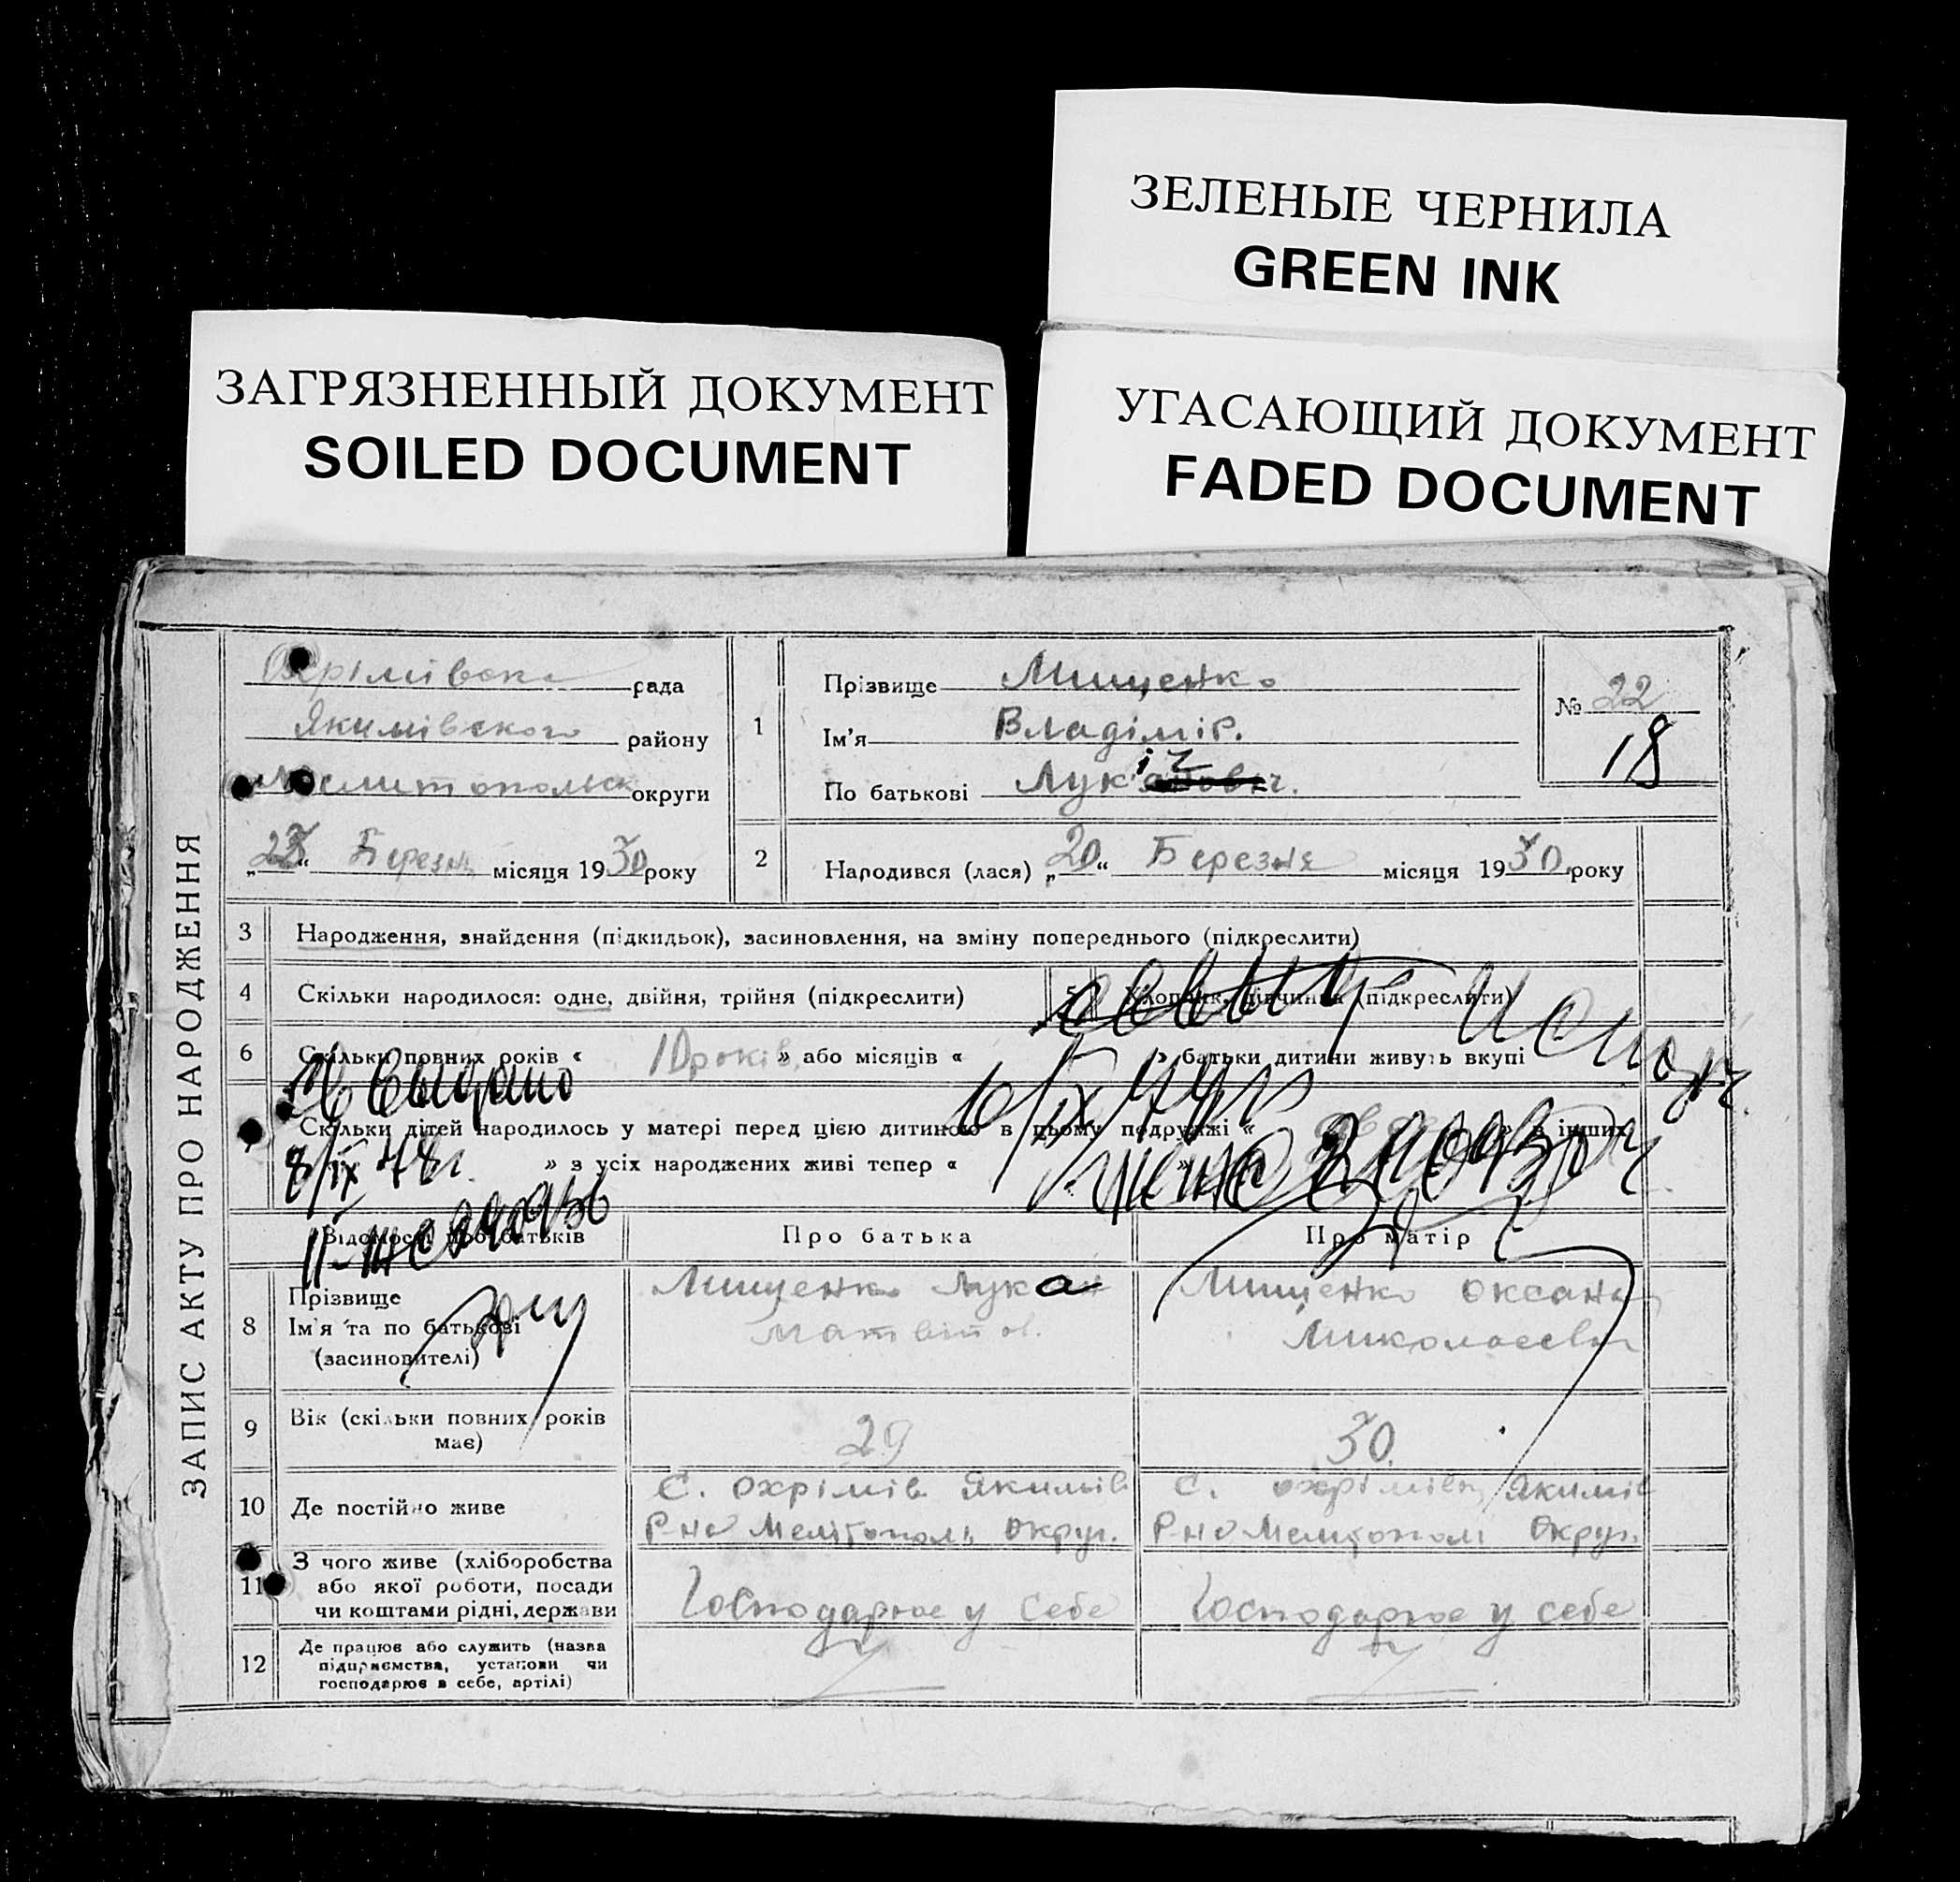 ЗЕЛЕНЫЕ ЧЕРНИЛА
GREEN INK
ЗАГРЯЗНЕННЫЙ ДОКУМЕНТ
SOILED DOCUMENT
УГАСАЮЩИЙ ДОКУМЕНТ
FADED DOCUMENT
ЗАПИС АКТУ ПРО НАРОДЖЕННЯ
рада
Якимівского району
Мелитопольск округи
„ “ Березня місяця 1930 року
1
Прізвище Мищенко
Ім'я Владімір.
По батькові Лук іч.
№ 22
18
2
Народився (лася) „20“ Березня місяця 1930 року
3
Народження, знайдення (підкидьок), засиновлення, на зміну попереднього (підкреслити)
4
Скільки народилося: одне, двійня, трійня (підкреслити)
5
Хлопчик, дівчинка (підкреслити)
6
Скільки повних років « 10 років » або місяців « » батьки дитини живуть вкупі
Св выдано
Скільки дітей народилось у матері перед цією дитиною в цьому подружжі « » в інших
8/IX 78г.
» з усіх народжених живі тепер « »
Відомості про батьків
Про батька
Про матір
8
Прізвище
Ім'я та по батькові
(засиновителі)
Мищенко Лука
Матвійов.
Мищенко Оксана
Миколаевна
9
Вік (скільки повних років
має)
29
30.
10
Де постійно живе
С. Охрімів. Якимів
Р-на Мелітополь Округ.
С. Охрімівка Якимів
Р-на Мелітополь Округ.
11
З чого живе (хліборобства
або якої роботи, посади
чи коштами рідні, держави
Господарює у себе
Господарює у себе
12
Де працює або служить (назва
підприємства, установи чи
господарює в себе, артілі)